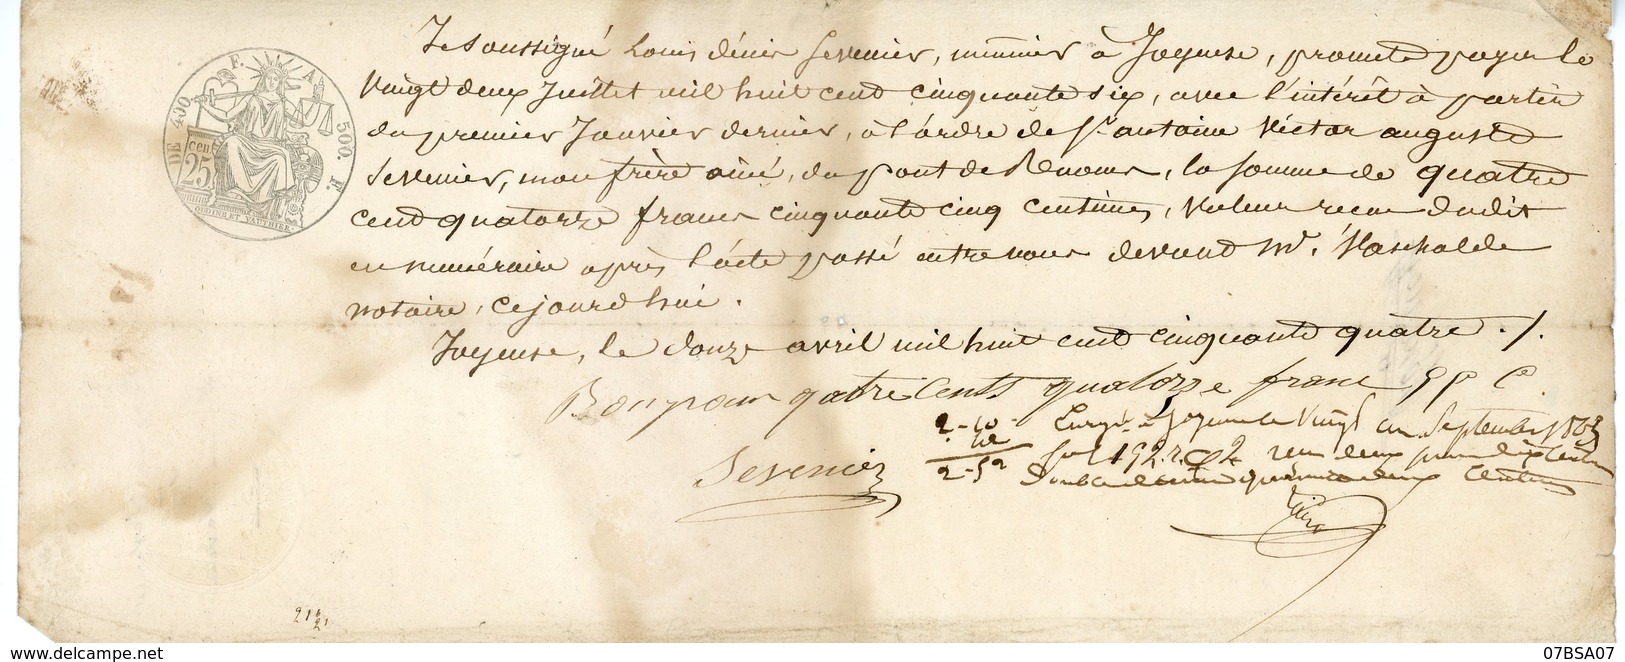 Je soussigné Louis Dénis Sevenier, meunier à Joyeuse, promets payer le
vingt deux Juillet mil huit cent cinquante six, avec l'intérêt à partir
du premier Janvier dernier, à l'ordre de Sr. antoine Victor auguste
Sevenier, mon frère ainé, du pont de, la somme de quatre
cent quatorze francs cinquante cinq centimes, valeur recue dudit
en numéraire après l'acte passé entre nous devant Mr.
notaire, cejourd'hui.
Joyeuse, le douze avril mil huit cent cinquante quatre ./.
Bon pour qatre Cents quatorze franc 55 C
Sevenier
2-10
42
2-52
Enreg. à Joyeuse le Vingt un Septembre 1863
fol 192 r. C 2 recu deux francs dix Centimes
Double decime quarante deux Centimes
DE 400. F. A 500. F.
25 cen
OUDINÉ ET VAUTHIER
07BSA07
www.delcampe.net